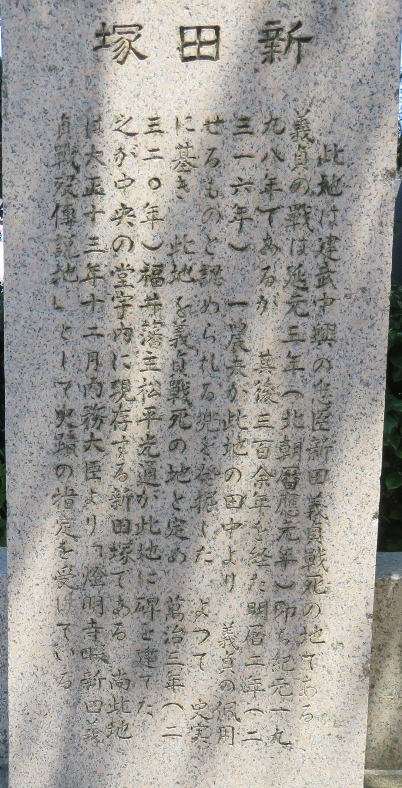 新田塚
此地は建武中興の忠臣新田義貞戦死の地である
義貞の戦は延元三年(北朝暦應元年)即ち紀元一九
九八年であるが 其後三百余年を経た明暦二年(二
三一六年) 一農夫が此地の田中より 義貞の佩用
せるものと認められる兜を発掘した よつて 史実
に基き 此地を義貞戦死の地と定め 萬治三年(二
三二〇年)福井藩主松平光通が此地に碑を建てた
之が中央の堂宇内に現存する新田塚である 尚此地
は大正十三年十二月内務大臣より「燈明寺畷新田義
貞戦歿傳説地」として史蹟の指定を受けている